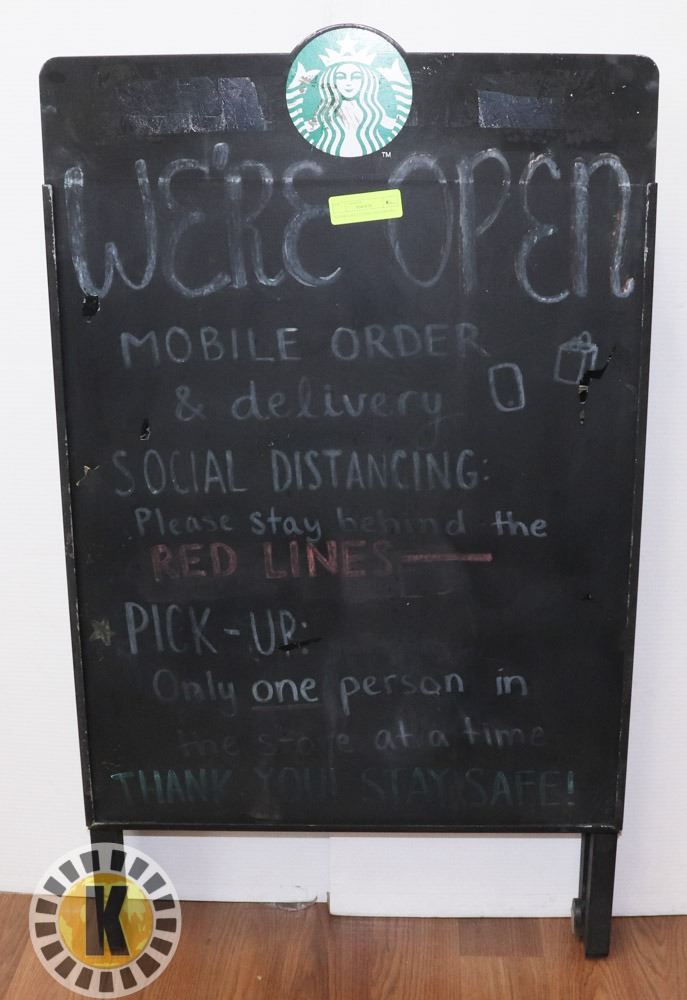 TM
WE'RE OPEN
MOBILE ORDER
& delivery
SOCIAL DISTANCING:
Please stay behind the
RED LINES
PICK-UP:
Only one person in
the store at a time
THANK YOU! STAY SAFE!
K